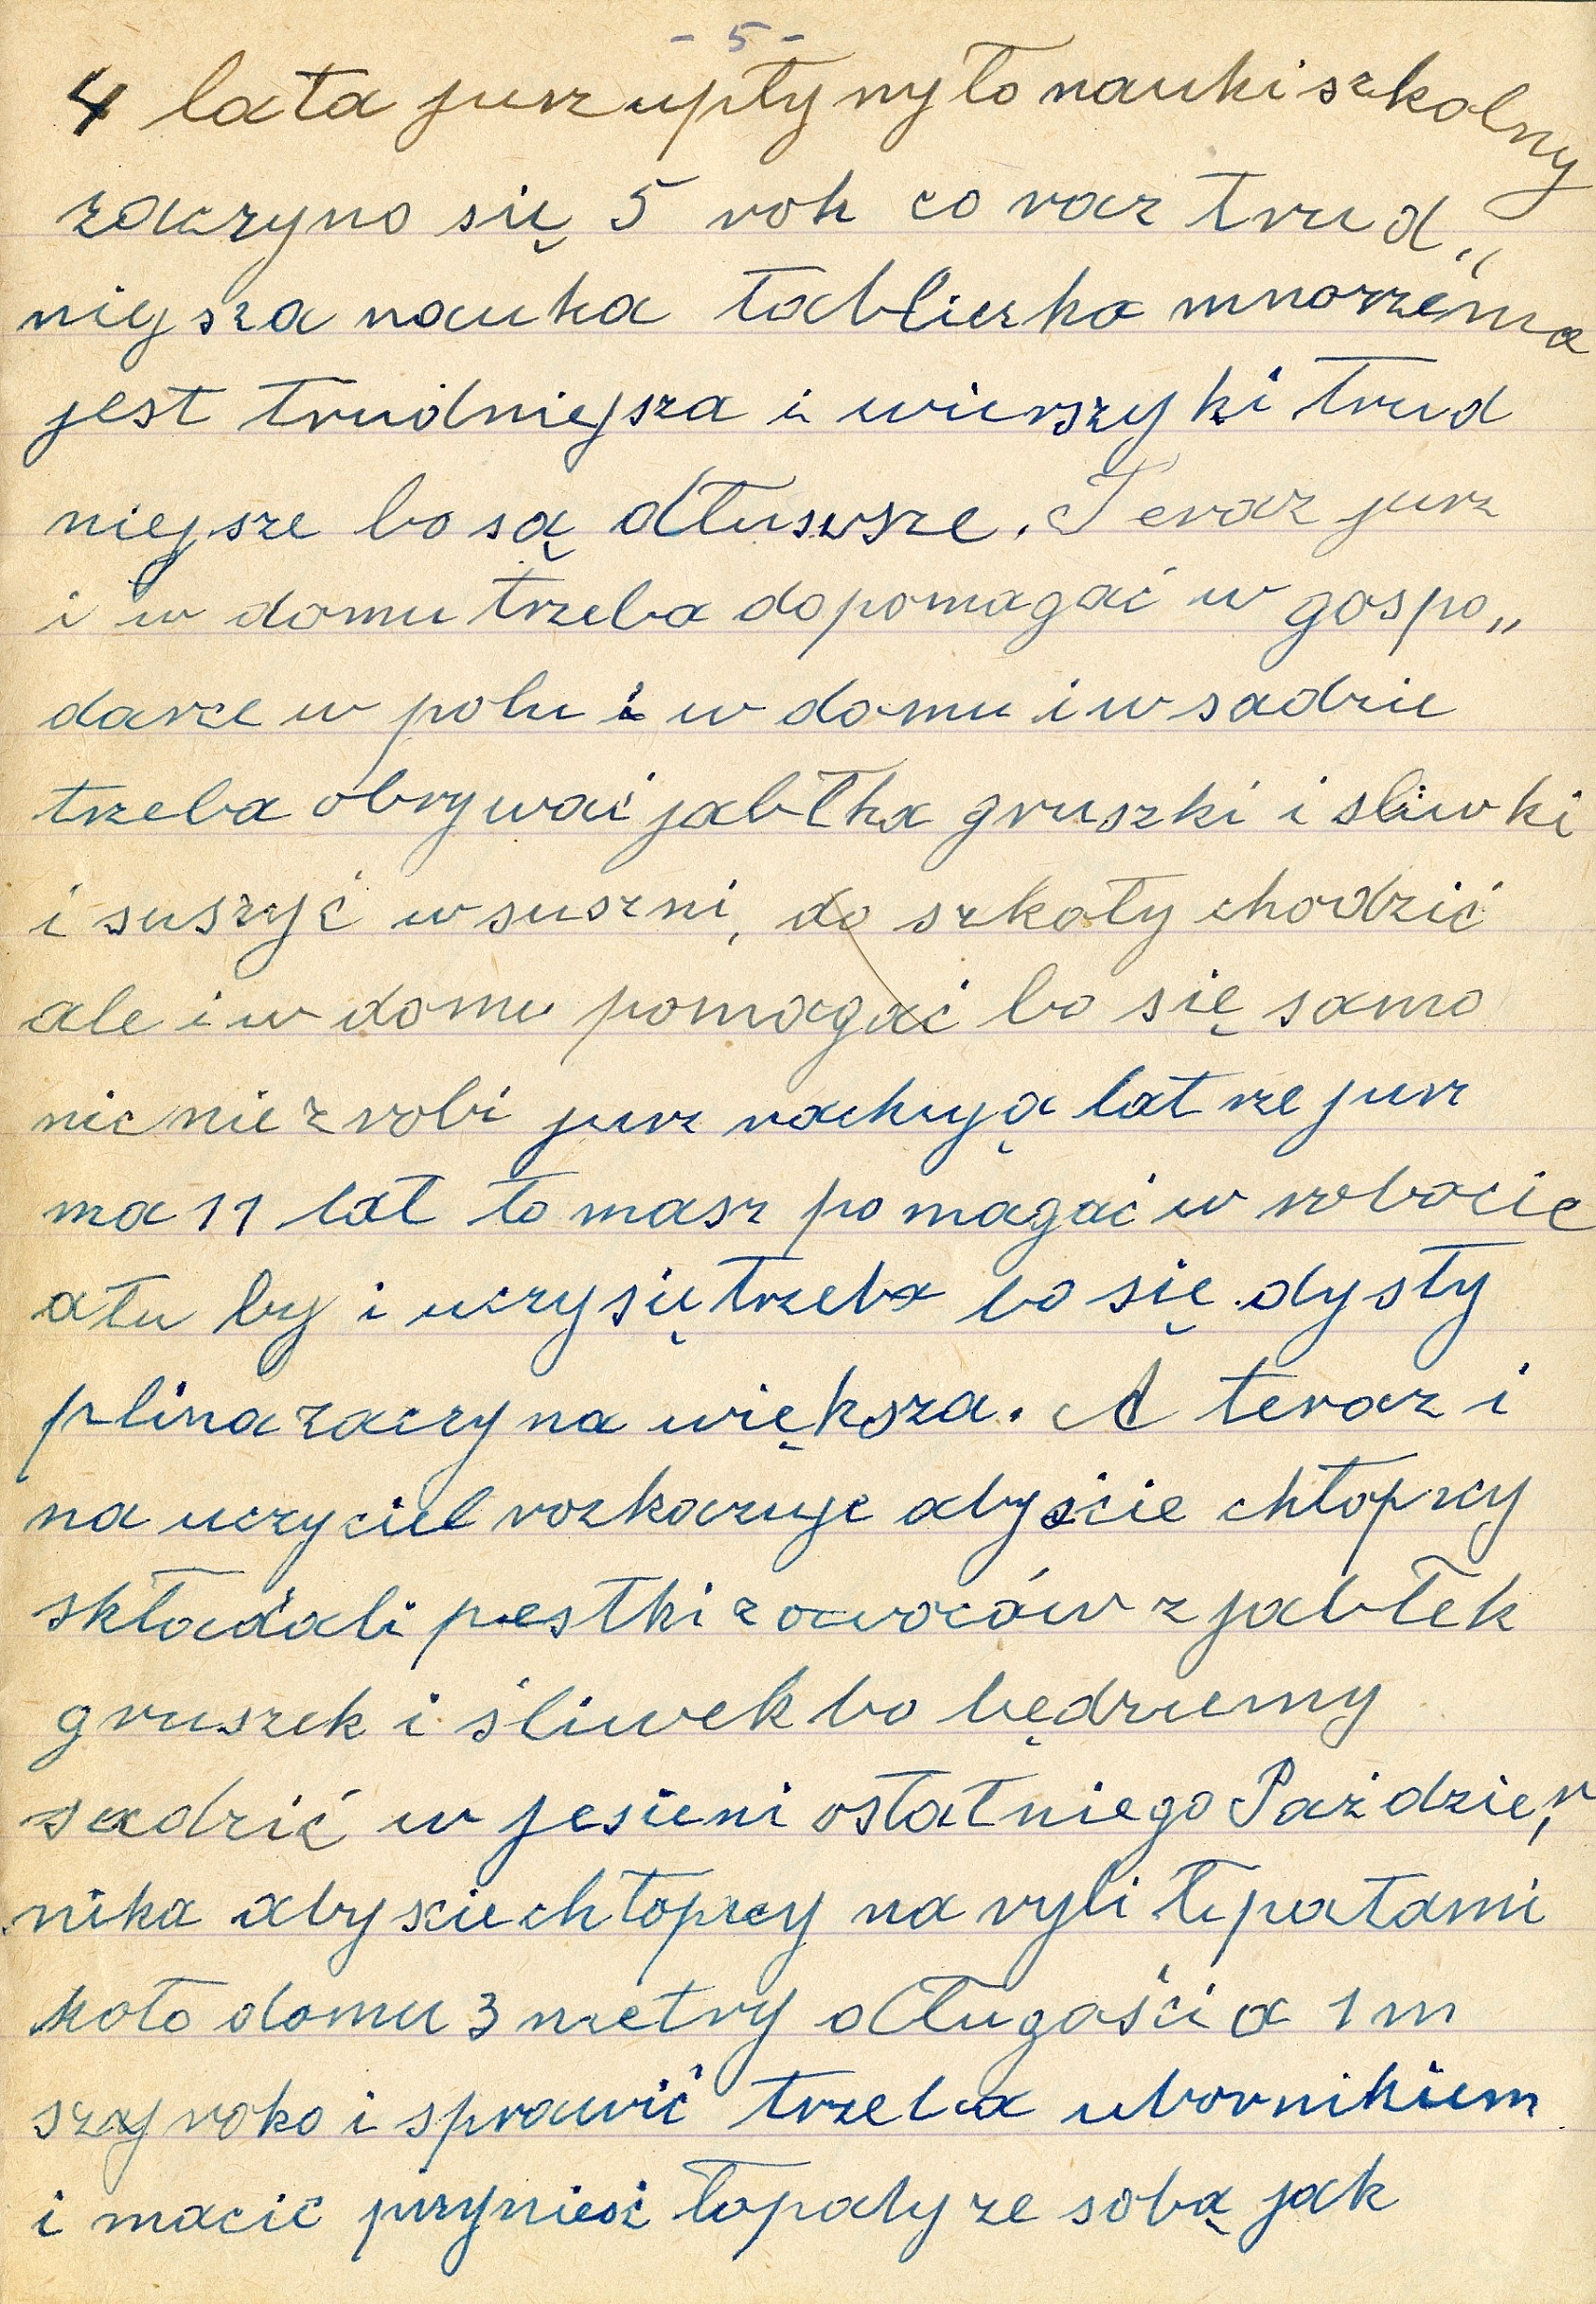 - 5 -
4 lata jurz upłynyło nauki szkolny
zaczyno się 5 rok co raz trud„
niejsza nauka tabliczka mnorzenia
jest trudniejsza i wierszyki trud
niejsze bo są dłusze. Teraz jurz
i w domu trzeba dopomagać w gospo„
darce w polu i w domu i w sadzie
trzeba obrywać jabłka gruszki i sliwki
i suszyć w suszni, do szkoły chodzić
ale i w domu pomagać bo się samo
nic nie zrobi jurz rachują lat rze jurz
ma 11 lat to masz pomagać w robocie
a tu by i uczy się trzeba bo się dysty
plina zaczyna większa. A teraz i
na uczyciel rozkazuje abyście chłopcy
składali pestki z owoców z jabłek
gruszek i śliwek bo będziemy
sadzić w jesieni ostatniego Paździer„
nika abyscie chłopcy na ryli łopatami
koło domu 3 metry długości a 1 m
szyroko i sprawić trzeba ubornikiem
i macie przynieść łopaty ze sobą jak